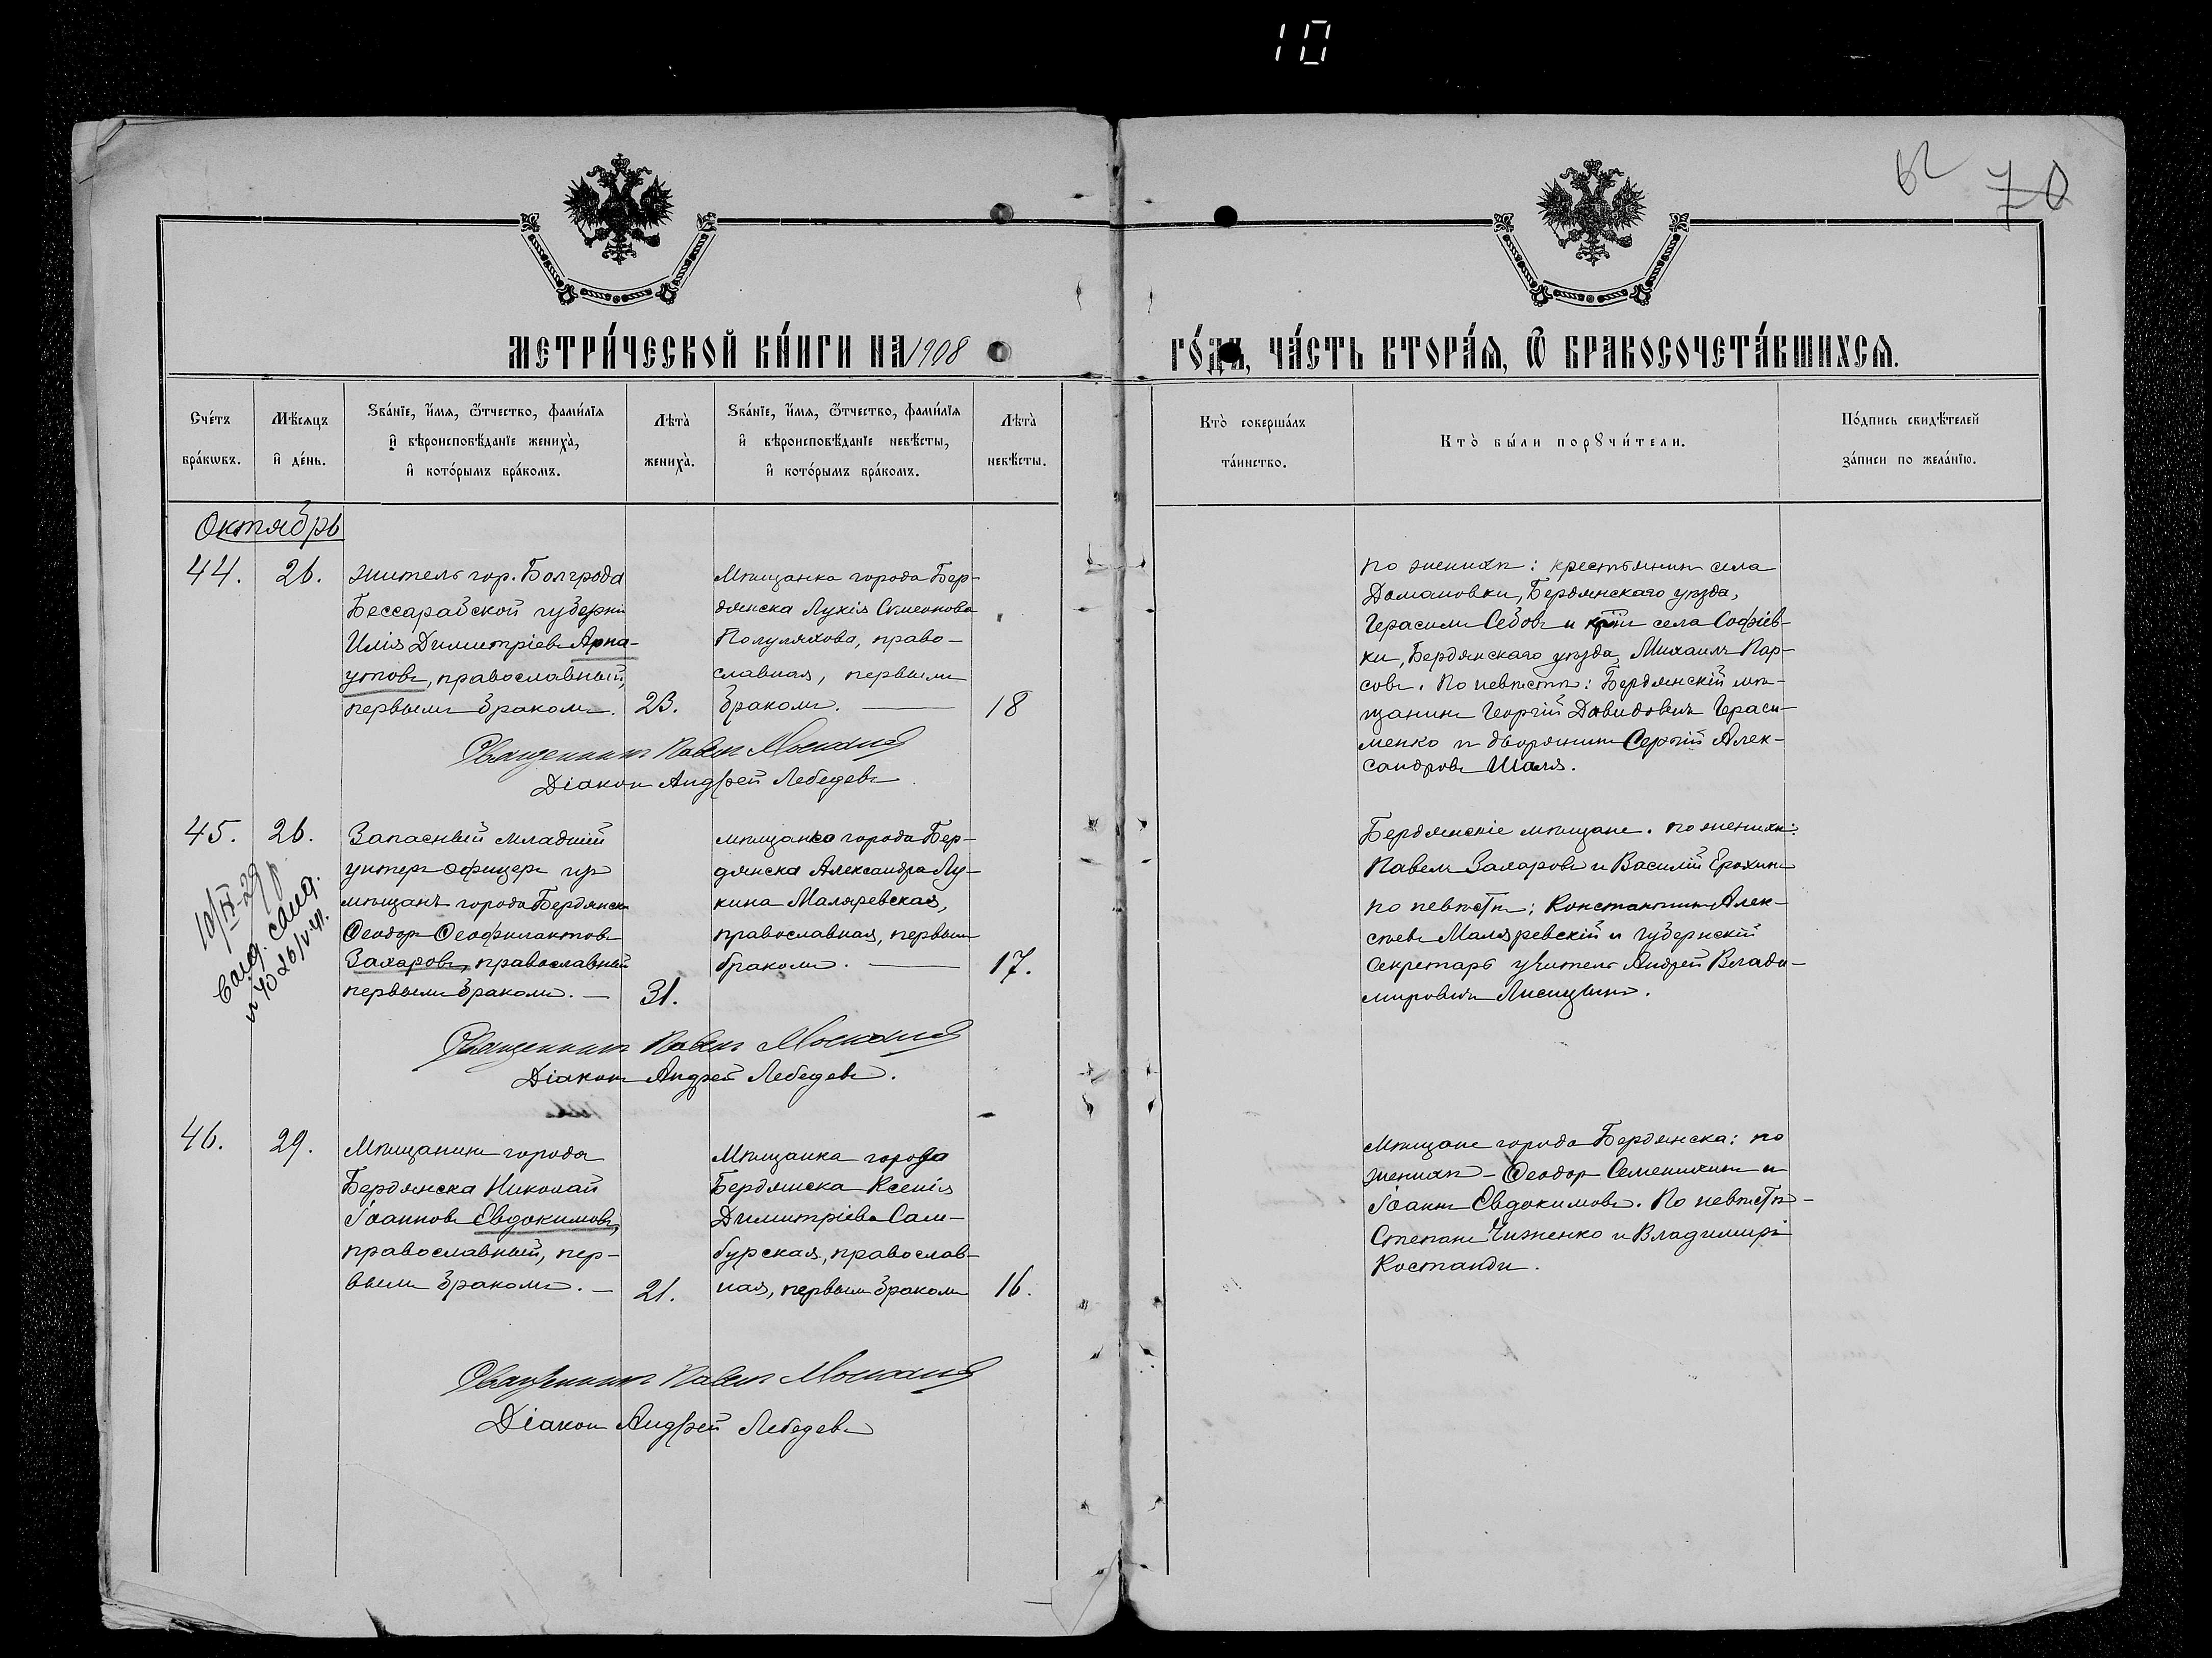 10
62 70
МЕТРИ́ЧЕСКОЙ КНИ́ГИ НА 1908
ГО́ДЪ, ЧА́СТЬ ВТОРА́Я, Ѿ БРАКОСОЧЕТА́ВШИХСЯ.
Сче́тъ
бра́кѡвъ.
Мѣ́сяцъ
и҆ де́нь.
Ѕва́нїе, и҆́мя, ѻ҆́тчество, фами́лїя
и҆ вѣроисповѣ́данїе жениха̀,
и҆ кото́рымъ бра́комъ.
Лѣта̀
жениха̀.
Ѕва́нїе, и҆́мя, ѻ҆́тчество, фами́лїя
и҆ вѣроисповѣ́данїе невѣ́сты,
и҆ кото́рымъ бра́комъ.
Лѣта̀
невѣ́сты.
Кто̀ соверша́лъ
та́инство.
Кто̀ бы́ли порꙋчи́тели.
По́дпись свидѣ́телей
за́писи по жела́нїю.
Октябрь
44.
26.
житель гор. Болграда
Бессарабской губерніи
Илія Димитріевъ Арна-
утовъ, православный,
первымъ бракомъ.
23.
Мѣщанка города Бер-
дянска Лукія Симеонова
Полуляхова, право-
славная, первымъ
бракомъ. —
18
по женихѣ: крестьянинъ села
Домановки, Бердянскаго уѣзда,
Герасимъ Седовъ и села Софіев-
ки, Бердянскаго уѣзда, Михаилъ Пар-
совъ. По невѣстѣ: Бердянскій мѣ-
щанинъ Георгій Давидовичъ Гераси-
менко и дворянинъ Сергій Алек-
сандровъ Шаля.
Священникъ Павелъ
Діаконъ Андрей Лебедевъ.
45.
26.
10/IX-29 р.
№ 4026/
Запасный младшій
унтеръ офицеръ изъ
мѣщанъ города Бердянска
Ѳеодоръ Ѳеофилактовъ
Захаровъ, православный
первымъ бракомъ. —
31.
мѣщанка города Бер-
дянска Александра Лу-
кина Маляревская,
православная, первымъ
бракомъ. —
17.
Бердянскіе мѣщане. по женихѣ:
Павелъ Захаровъ и Василій Ерохинъ
по невѣстѣ: Константинъ Алек-
сѣевъ Маляревскій и губернскій
секретарь учитель Андрей Влади-
мировичъ Лисицынъ.
Священникъ Павелъ
Діаконъ Андрей Лебедевъ.
46.
29.
Мѣщанинъ города
Бердянска Николай
Іоанновъ Евдокимовъ,
православный, пер-
вымъ бракомъ. —
21.
Мѣщанка города
Бердянска Ксенія
Димитріева Сам-
бурская, православ-
ная, первымъ бракомъ
16.
Мѣщане города Бердянска: по
женихѣ — Ѳеодоръ Семенихинъ и
Іоаннъ Евдокимовъ. По невѣстѣ —
Степанъ Чиженко и Владимиръ
Костанди.
Священникъ Павелъ
Діаконъ Андрей Лебедевъ